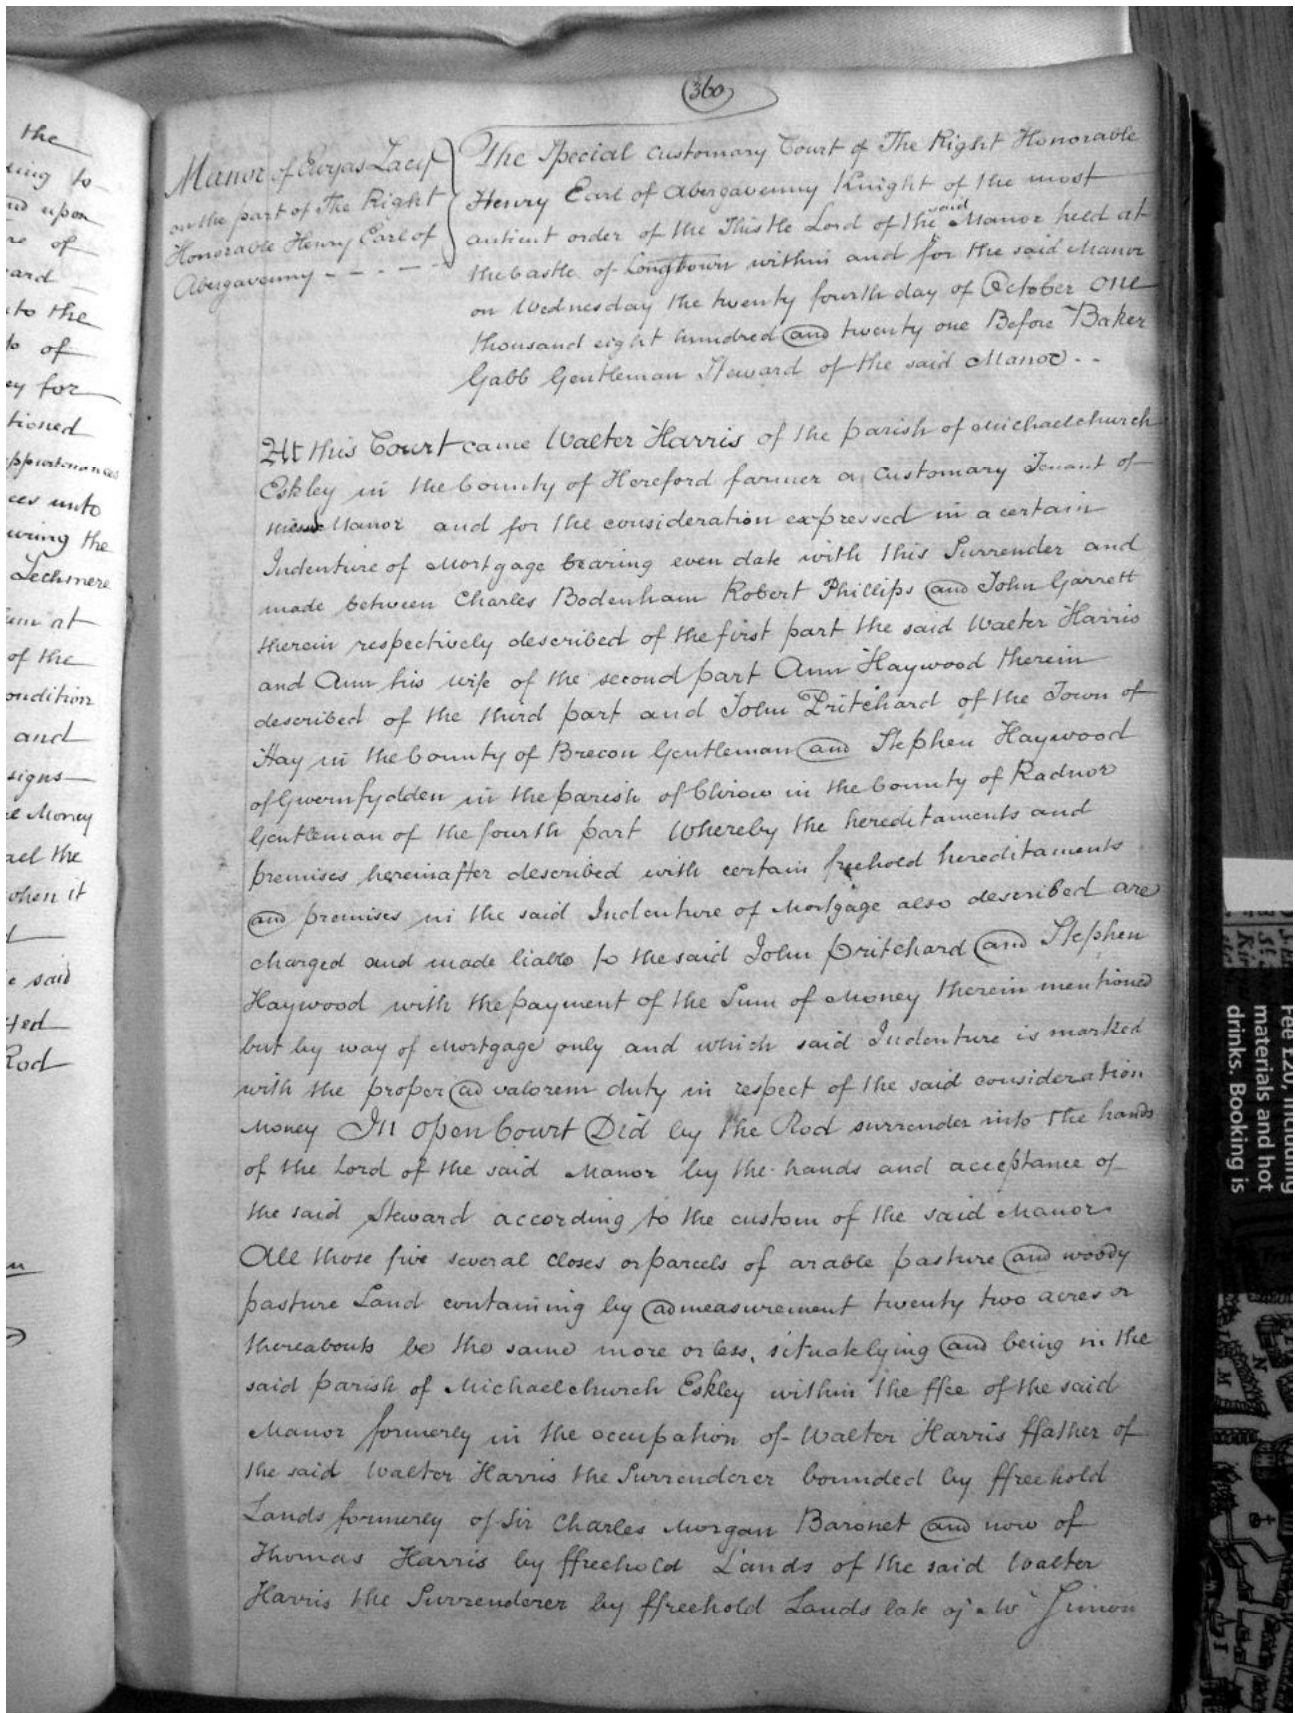 360
Manor of Ewyas Lacy
on the part of The Right
Honorable Henry Earl of
Abergavenny - - - - -
The Special customary Court of The Right Honorable
Henry Earl of Abergavenny Knight of the most
antient order of the Thistle Lord of the said Manor held at
the Castle of Longtown within and for the said Manor
on Wednesday the twenty fourth day of October one
thousand eight hundred and twenty one Before Baker
Gabb Gentleman Steward of the said Manor - -
At this Court came Walter Harris of the parish of Michaelchurch
Eskley in the County of Hereford farmer a customary Tenant of
Manor and for the consideration expressed in a certain
Indenture of Mortgage bearing even date with this Surrender and
made between Charles Bodenham Robert Phillips and John Garrett
therein respectively described of the first part the said Walter Harris
and Ann his wife of the second part Ann Haywood therein
described of the third part and John Pritchard of the Town of
Hay in the County of Brecon Gentleman and Stephen Haywood
of Gwernfydden in the parish of Clirow in the County of Radnor
Gentleman of the fourth part Whereby the hereditaments and
premises hereinafter described with certain freehold hereditaments
and premises in the said Indenture of Mortgage also described are
charged and made liable to the said John Pritchard and Stephen
Haywood with the payment of the Sum of Money therein mentioned
but by way of Mortgage only and which said Indenture is marked
with the proper ad valorem duty in respect of the said consideration
Money In open Court Did by the Rod surrender into the hands
of the Lord of the said Manor by the hands and acceptance of
the said Steward according to the custom of the said Manor
All those five several closes or parcels of arable pasture and woody
pasture Land containing by admeasurement twenty two acres or
thereabouts be the same more or less, situate lying and being in the
said parish of Michaelchurch Eskley within the ffee of the said
Manor formerly in the occupation of Walter Harris ffather of
the said Walter Harris the Surrenderer bounded by ffreehold
Lands formerly of Sir Charles Morgan Baronet and now of
Thomas Harris by ffreehold Lands of the said Walter
Harris the Surrenderer by ffreehold Lands late of Mr Simon
the
upon
of
to the
of
for
unto
the
Lechmere
at
of the
and
Money
the
when it
said
Rod
Fee £20, including
materials and hot
drinks. Booking is